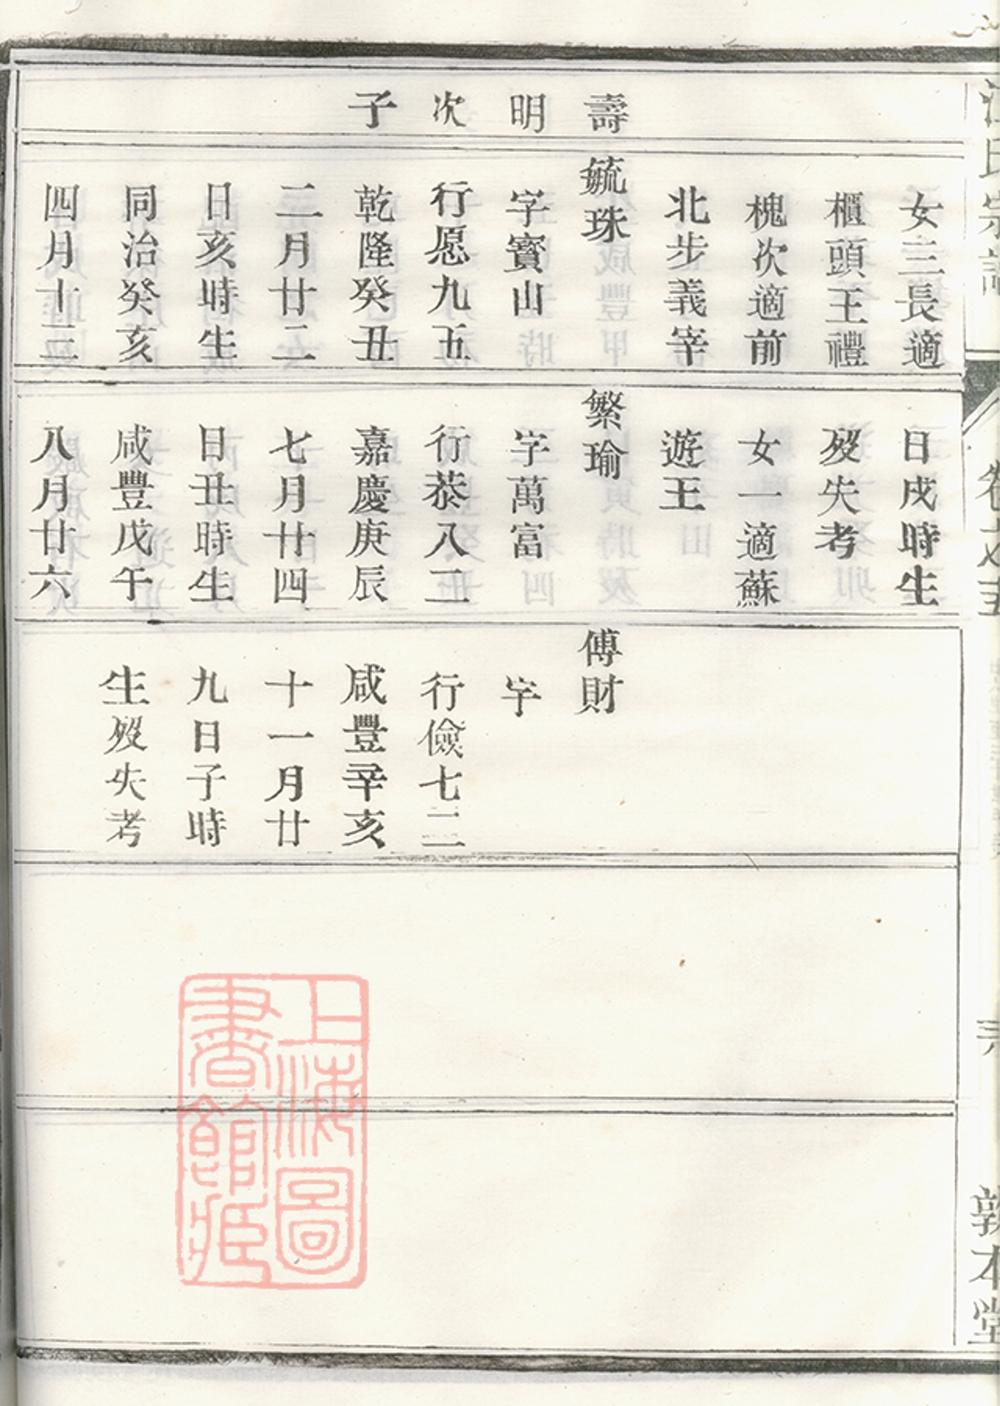 氏宗譜
敦本堂
壽明次子
女三長適
櫃頭王禮
槐次適前
北步義宰
毓珠
字寳山
行愿九五
乾隆癸丑
二月廿二
日亥時生
同治癸亥
四月十三
日戌時生
歿失考
女一適蘇
遊王
繁瑜
字萬富
行恭八二
嘉慶庚辰
七月廿四
日丑時生
咸豐戊午
八月廿六
傅財
字
行儉七二
咸豐辛亥
十一月廿
九日子時
生歿失考
上海圖
書館藏